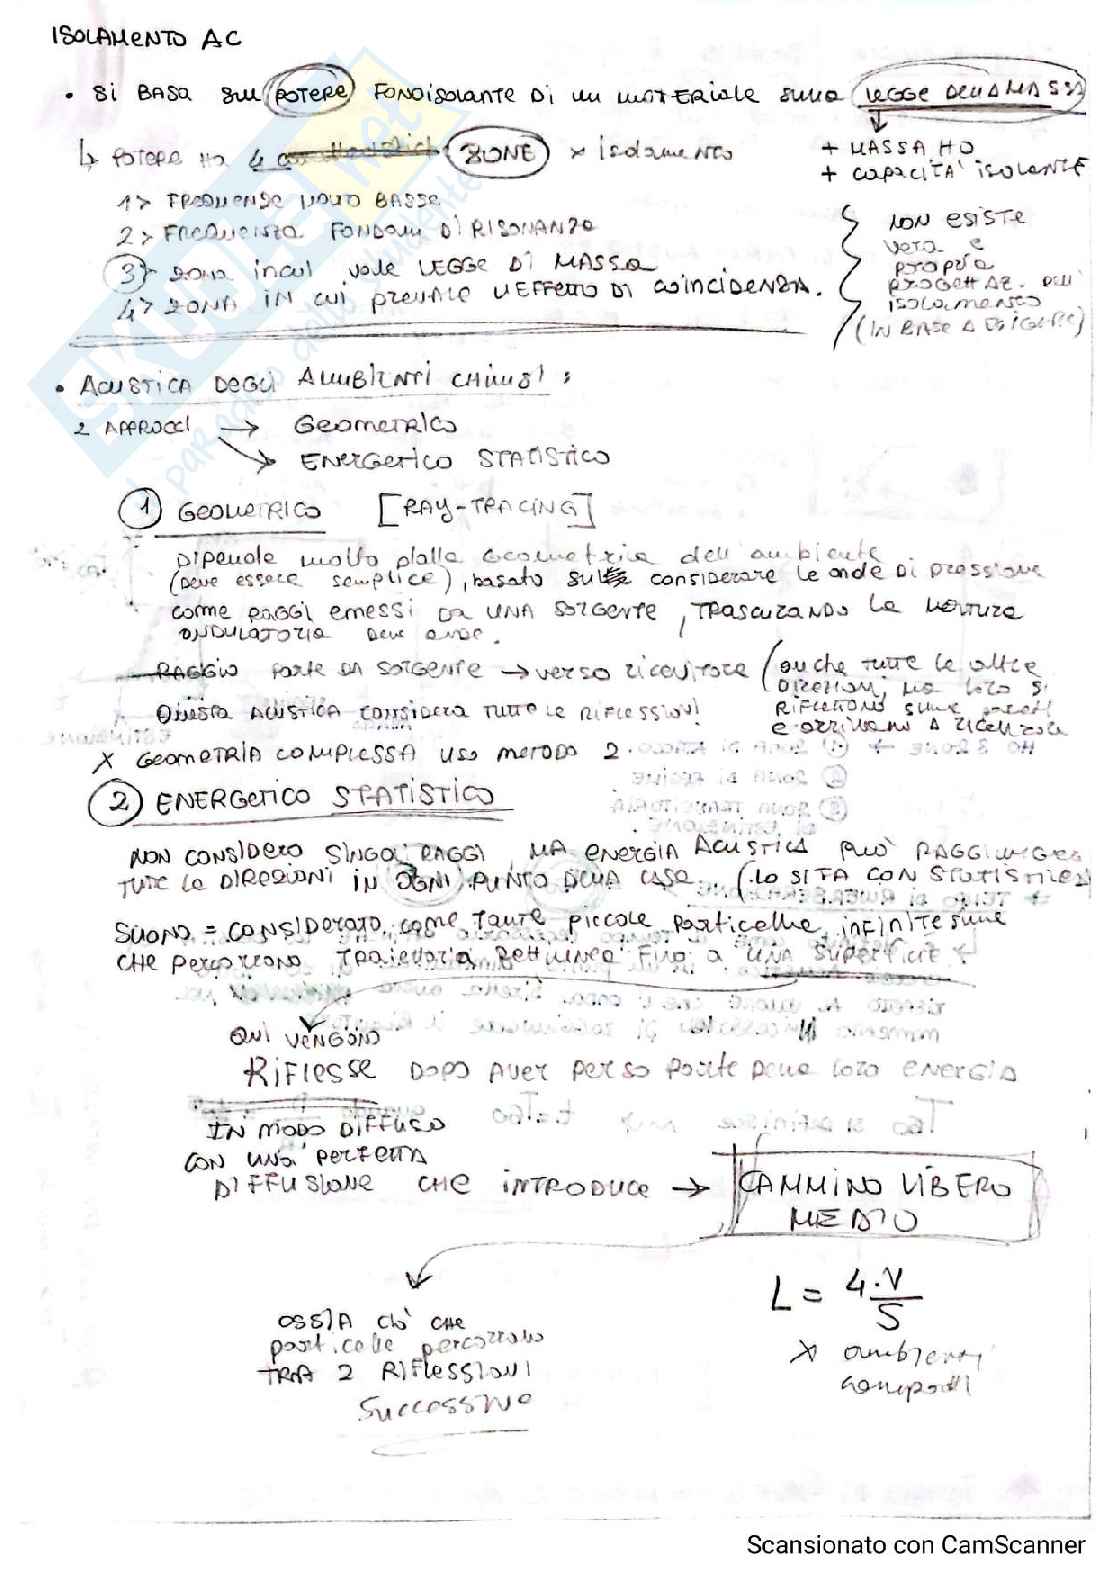 ISOLAMENTO AC
• SI BASA SUL POTERE FONOISOLANTE DI UN MATERIALE SULLA LEGGE DELLA MASSA
↳ POTERE HA 4 ZONE x isolamento
+ MASSA HO
+ CAPACITA' ISOLANTE
1> FREQUENZE MOLTO BASSE
2> FREQUENZA FONDAM DI RISONANZA
3> ZONA IN CUI VALE LEGGE DI MASSA
4> ZONA IN CUI PREVALE L'EFFETTO DI COINCIDENZA.
NON ESISTE
VERA E
PROPRIA
PROGETTAZ. DELL'
ISOLAMENTO
(IN BASE A ESIGENZE)
• ACUSTICA DEGLI AMBIENTI CHIUSI:
2 APPROCCI → GEOMETRICO
→ ENERGETICO STATISTICO
1 GEOMETRICO [RAY-TRACING]
DIPENDE molto dalla Geometria dell'ambiente.
(DEVE ESSERE SEMPLICE), basato sul considerare le onde DI PRESSIONE
COME RAGGI EMESSI DA UNA SORGENTE, TRASCURANDO LA NATURA
ONDULATORIA DELLE ONDE.
RAGGIO parte DA SORGENTE → verso ricevitore (anche TUTTE le altre
DIREZIONI, MA LORO SI
RIFLETTONO SULLE PARETI
E ARRIVANO A RICEVITORE
QUESTA ACUSTICA CONSIDERA TUTTE LE RIFLESSIONI
X GEOMETRIA COMPLESSA USO METODO 2.
2 ENERGETICO STATISTICO
NON CONSIDERO SINGOLI RAGGI, MA ENERGIA ACUSTICA PUÒ RAGGIUNGERE
TUTTE LE DIREZIONI IN OGNI PUNTO DELLA CASA. (LO SI FA CON STATISTICA)
SUONO = CONSIDERATO come TANTE piccole particelle infinitesime
CHE percorrono TRAIETTORIA RETTILINEA FINO A UNA SUPERFICIE
QUI VENGONO
RIFLESSE DOPO AVER PERSO PARTE DELLA LORO ENERGIA
IN MODO DIFFUSO
CON UNA PERFETTA
DIFFUSIONE CHE INTRODUCE → CAMMINO LIBERO
MEDIO
L = 4·V/S
x ambienti
OSSIA CIÒ CHE
particelle percorrono
TRA 2 RIFLESSIONI
Successive
Scansionato con CamScanner